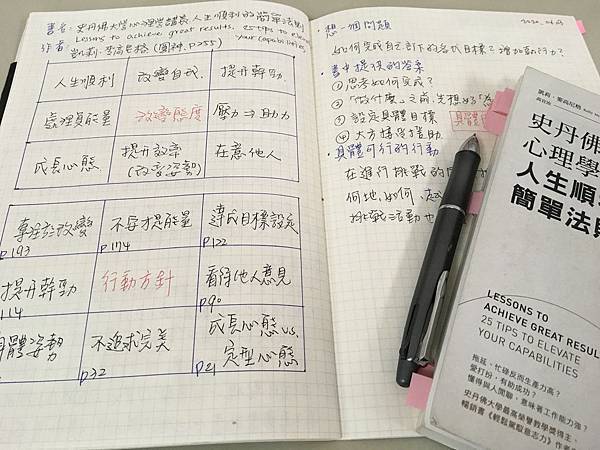 書名:史丹佛大學心理學講義 人生順利的簡單法則
Lessons to achieve great results, 25 tips to elevate
your capabilities
作者:凱莉・麥高尼格
人生順利
改變自我
提升幹勁
處理負能量
改變態度
壓力⇒助力
成長心態
提升效率
(改變姿勢)
在意他人
專注於改變
P193
不妥才提能量
P174
達成目標設定
P122
提升幹勁
114
行動方針
看待他人意見
P90
體姿勢
不追求完美
P32
成長心態 vs.
定型心態
P21
・想一個問題
如何完成自己訂下的各式目標?增加動力?
・書中提供的答案
①思考如何完成?
②「做什麼」之前,先想好「為
③設定具體目標
④大方接受援助
・具體可行的行動
在進行挑戰的
何地、如何、
挑戰活動也
史丹佛
心理學
人生順
簡單法則
LESSONS TO
ACHIEVE GREAT RESUL
25 TIPS TO ELEVATE
YOUR CAPABILITIES
拖延、忙碌反而生產力高?
愛打扮,有助成功?
懂得與人閒聊,意味著工作能力強?
史丹佛大學最高榮譽教學獎得主、
暢銷書《輕鬆駕馭意志力》作者